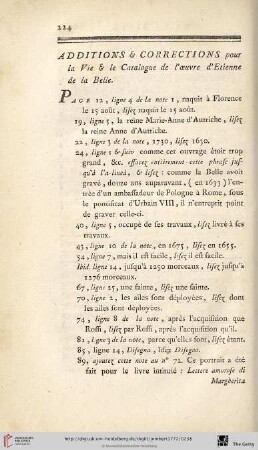 224
ADDITIONS & CORRECTIONS pour
la Vie & le Catalogue de l'œuvre d'Etienne
de la Belle.
PAGE 12, ligne 4 de la note 1, naquit à Florence
le 15 août, lisez naquit le 15 août.
19, ligne 5, la reine Marie-Anne d'Autriche, lisez
la reine Anne d'Autriche.
22, ligne 3 de la note, 1730, lisez 1630.
24, ligne 1 & suiv comme cet ouvrage étoit trop
grand, &c. effacez entièrement cette phrase jus-
qu'à l'a-linea, & lisez : comme la Belle avoit
gravé, douze ans auparavant, (en 1633) l'en-
trée d'un ambassadeur de Pologne à Rome, sous
le pontificat d'Urbain VIII, il n'entreprit point
de graver celle-ci.
40, ligne 5, occupé de ses travaux, lisez livré à ses
travaux.
43, ligne 10 de la note, en 1675, lisez en 1655.
54, ligne 7, mais il est facile, lisez il est facile.
Ibid. ligne 14, jusqu'à 1250 morceaux, lisez jusqu'à
1276 morceaux.
67, ligne 25, une sainte, lisez une sainte.
70, ligne 2, les ailes sont déployées, lisez dont
les ailes sont déployées.
74, ligne 8 de la note, après l'acquisition que
Rossi, lisez par Rossi, après l'acquisition qu'il.
82, ligne 3 de la note, parce qu'elles sont, lisez étant.
85, ligne 14, Disegna, lisez Disegno.
89, ajoutez cette note au n° 72. Ce portrait a été
fait pour le livre intitulé : Lettere amorose di
Margherita
http://digi.ub.uni-heidelberg.de/diglit/jombert1772/0238
© Universitätsbibliothek Heidelberg
The Getty